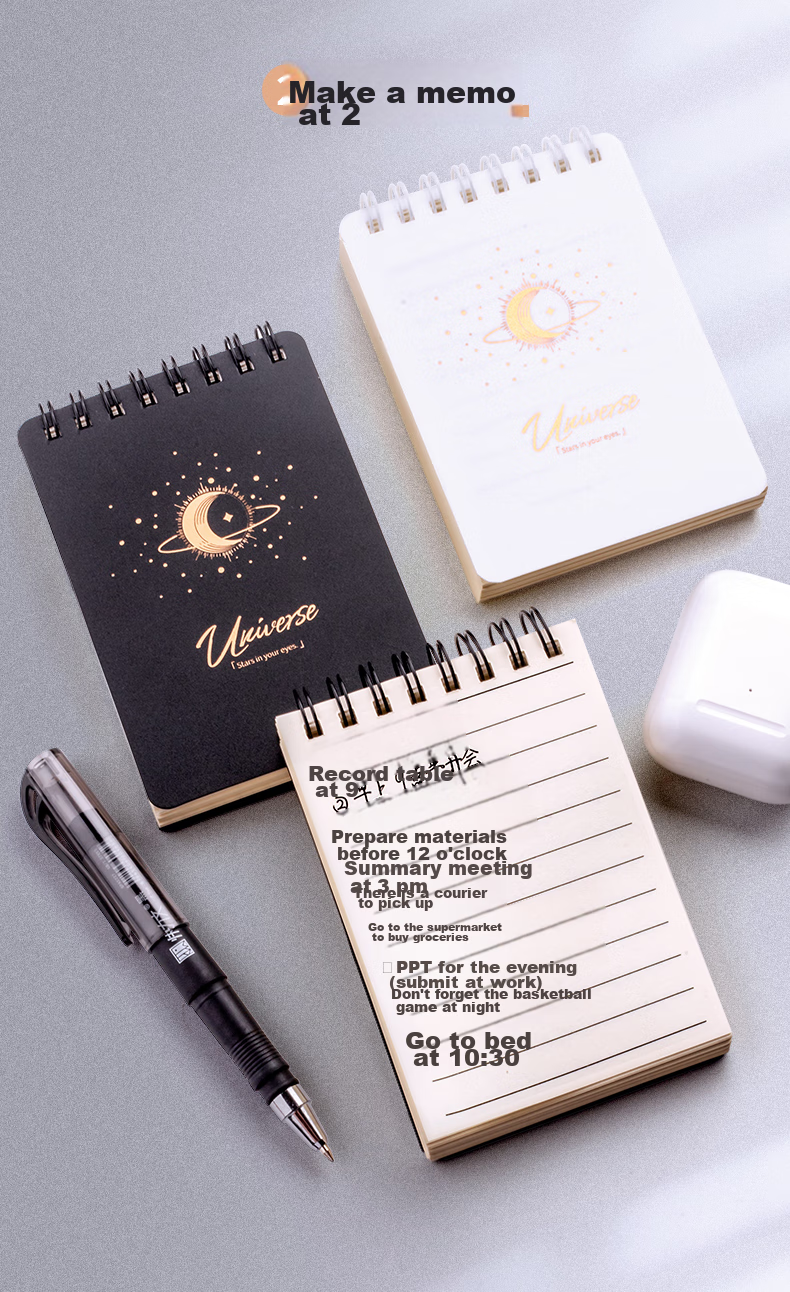 Make a memo
at 2
Universe
「Stars in your eyes.」
Universe
「Stars in your eyes.」
Record table
at 9
Prepare materials
before 12 o'clock
Summary meeting
at 3 pm
There is a courier
to pick up
Go to the supermarket
to buy groceries
PPT for the evening
(submit at work)
Don't forget the basketball
game at night
Go to bed
at 10:30